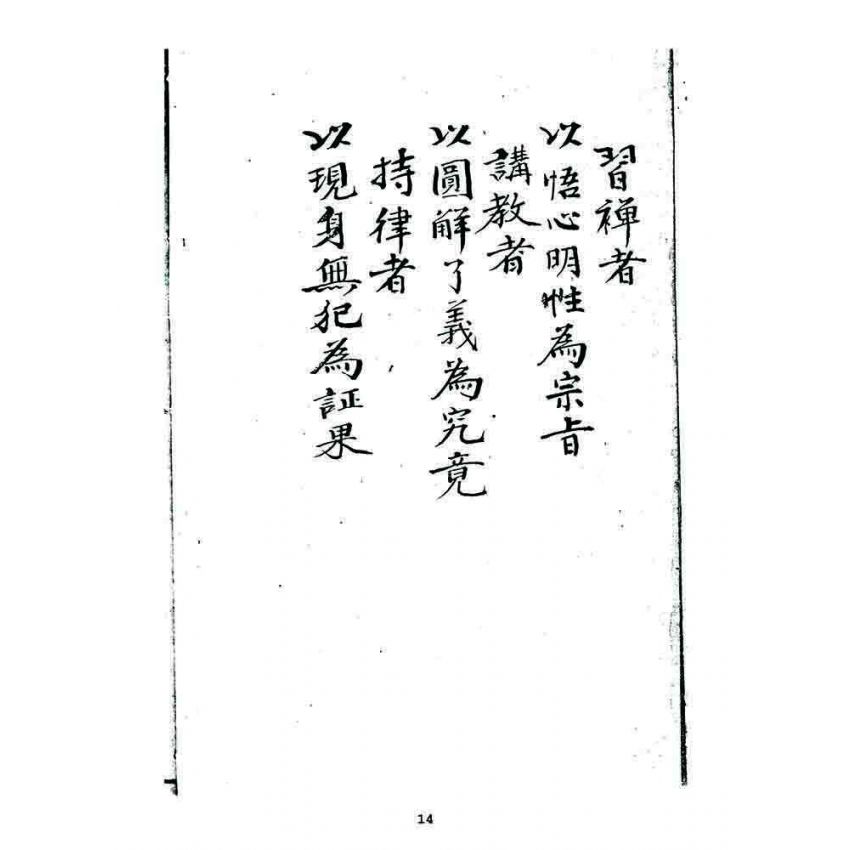 習禅者
以悟心明性為宗旨
講教者
以圓解了義為究竟
持律者
以現身無犯為証果
14